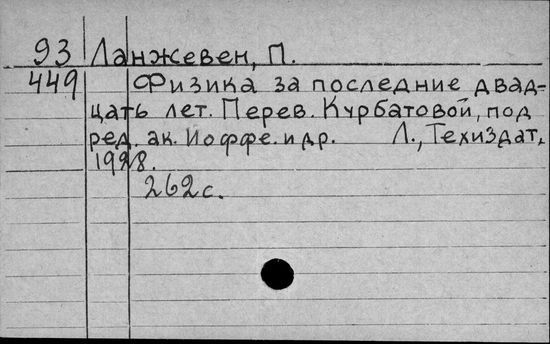 93 Ланжевен, П.
449 Физика за последние двад-
цать лет. Перев. Курбатовой, под
ред. ак. Иоффе. и др. Л., Техиздат,
1928.
262 с.